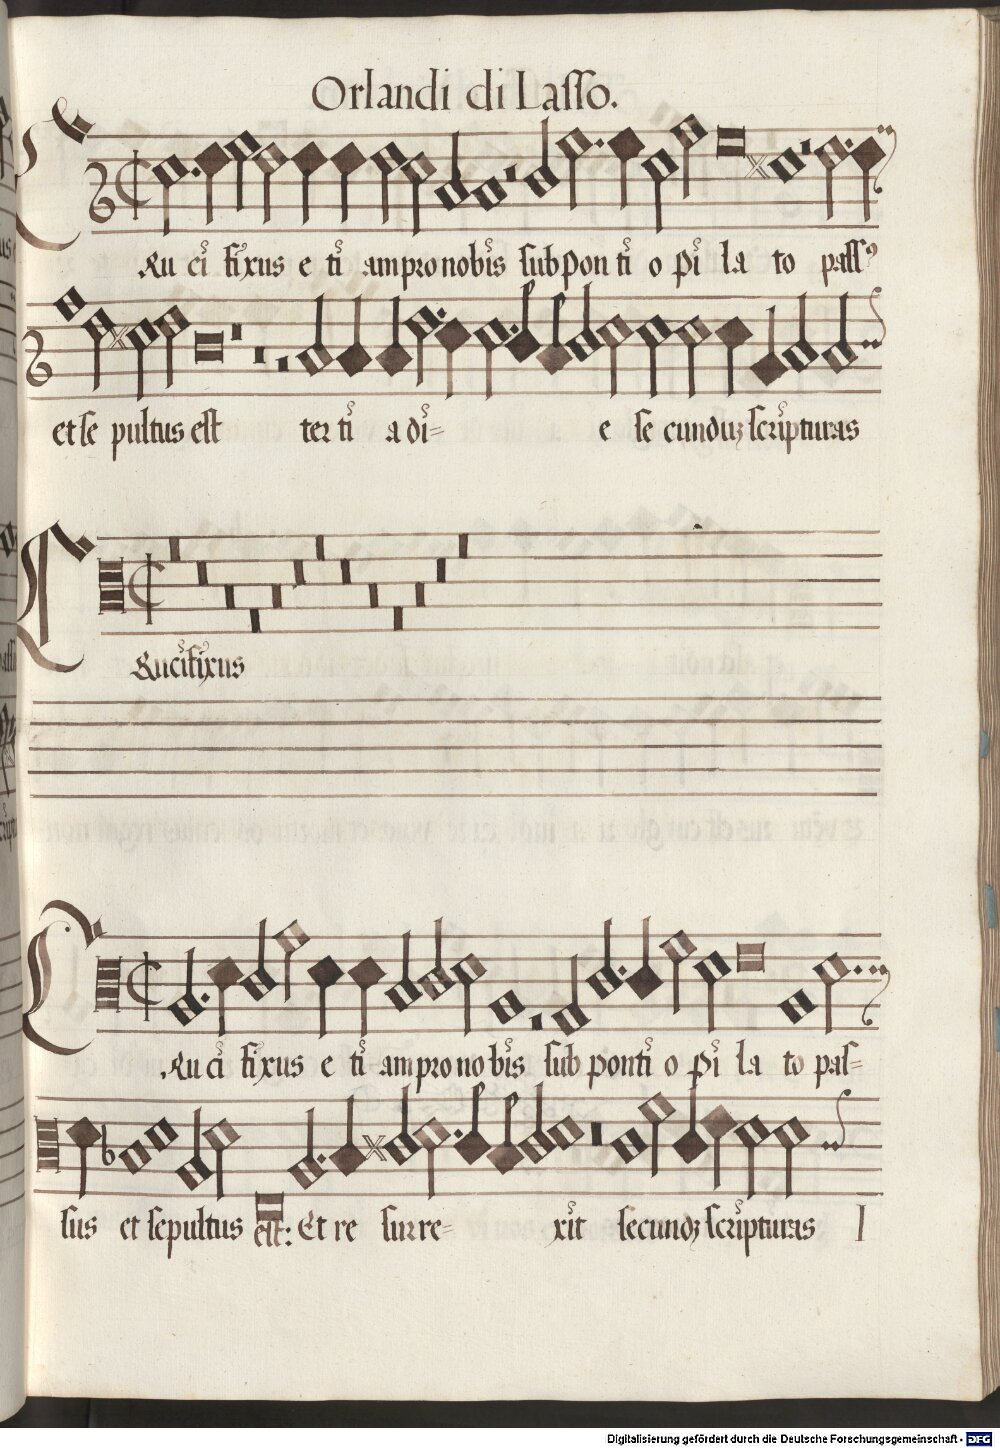 Orlandi di Lasso.
CRu ci fixus e ti am pro nobis sub Pon ti o Pi la to pass⁹
et se pultus est ter ti a di= e se cunduʒ scripturas
CRucifixus
CRu ci fixus e ti am pro no bis sub Ponti o Pi la to pas=
sus et sepultus est: Et re surre= xit secundʒ scripturas I
Digitalisierung gefördert durch die Deutsche Forschungsgemeinschaft - DFG